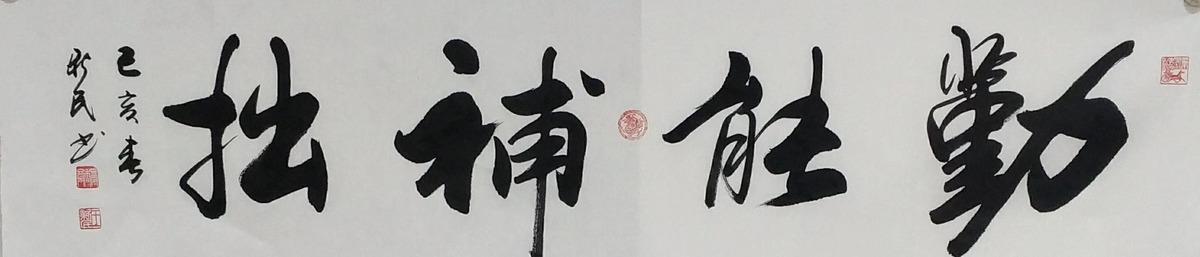 勤能補拙
己亥春
新民书